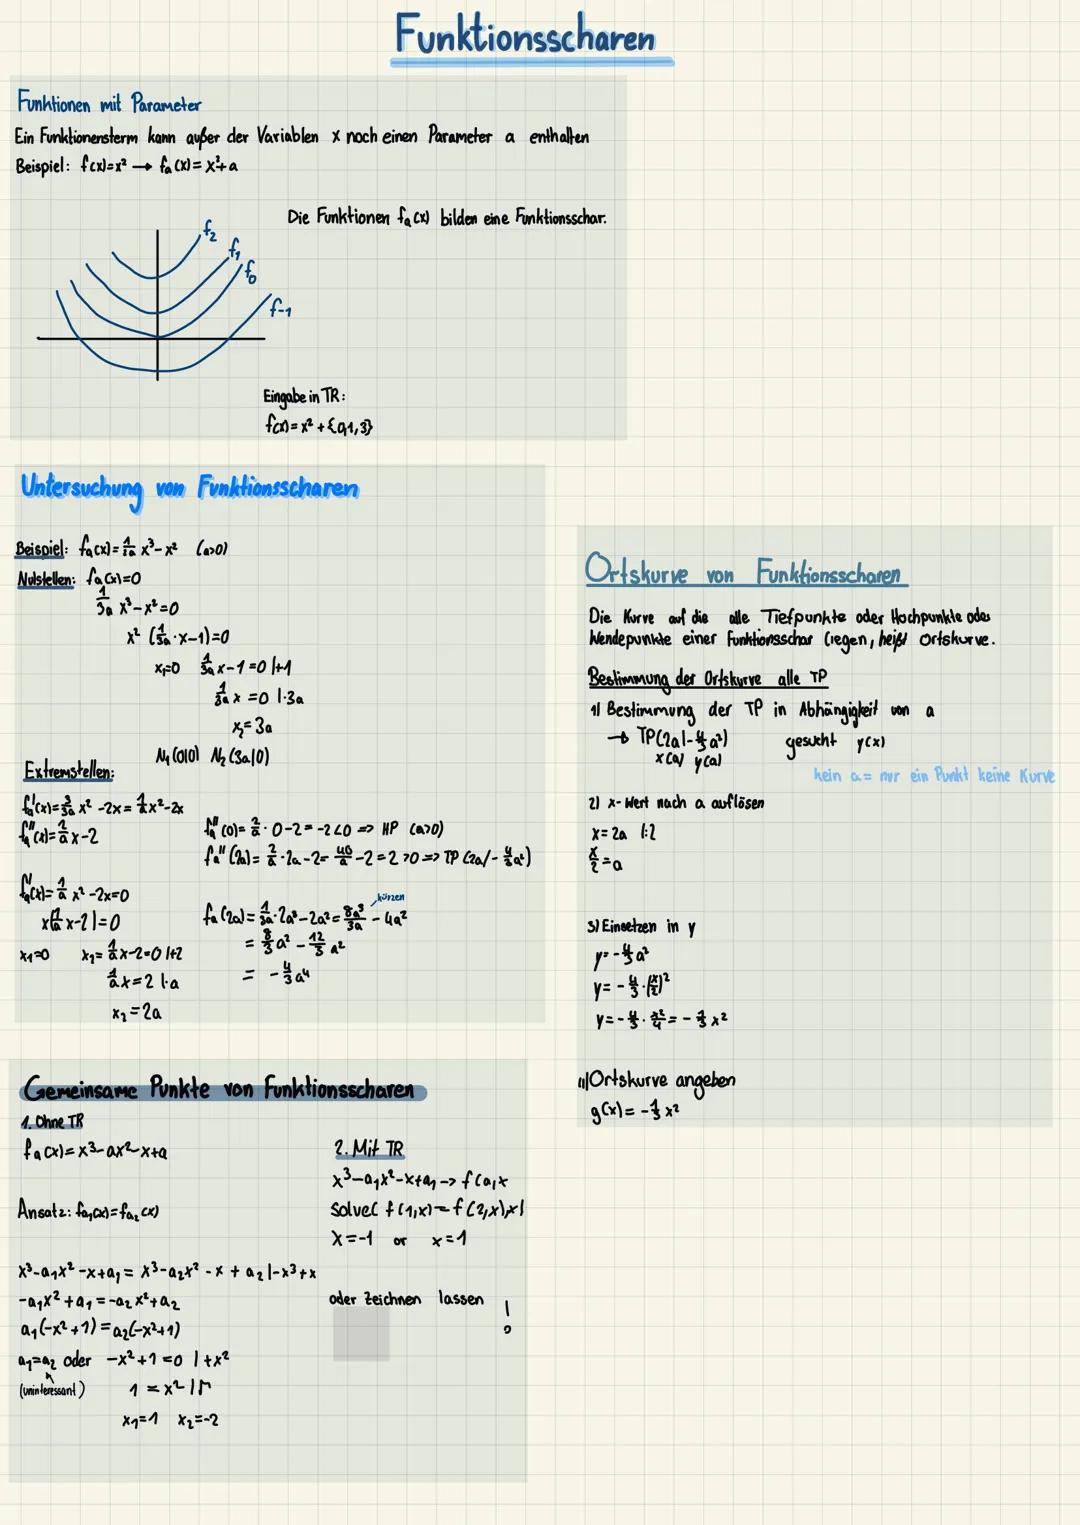 Funktionsscharen
Funktionen mit Parameter
Ein Funktionensterm kann außer der Variablen x noch einen Parameter a enthalten
Beispiel: f(x)=x² → fₐ(x)=x²+a
Die Funktionen fₐ(x) bilden eine Funktionsschar.
f₂
f₁
f₀
f₋₁
Eingabe in TR:
f(x)=x²+{0,1,3}
Untersuchung von Funktionsscharen
Beispiel: fₐ(x)=1/3a x³-x² (a>0)
Nulstellen: fₐ(x)=0
1/3a x³-x²=0
x² (1/3a·x-1)=0
x₁=0 1/3a x-1=0 |+1
1/3a x=0 |·3a
x₂=3a
N₁(0|0) N₂(3a|0)
Extremstellen:
fₐ'(x)=3/3a x²-2x=1/a x²-2x
fₐ''(x)=2/a x-2
fₐ'(x)=1/a x²-2x=0
x(1/a x-2)=0
x₁=0 x₂=1/a x-2=0 |+2
1/a x=2 |·a
x₂=2a
fₐ''(0)=2/a·0-2=-2<0 => HP (a>0)
fₐ''(2a)=2/a·2a-2=4a/a-2=2>0 => TP(2a/-4/3a²)
kürzen
fₐ(2a)=1/3a·2a³-2a²=8a³/3a-4a²
=8/3a²-12/3a²
=-4/3a⁴
Ortskurve von Funktionsscharen
Die Kurve auf die alle Tiefpunkte oder Hochpunkte oder
Wendepunkte einer Funktionsschar liegen, heißt Ortskurve.
Bestimmung der Ortskurve alle TP
1) Bestimmung der TP in Abhängigkeit von a
→ TP(2a|-4/3a²) gesucht y(x)
x(a) y(a)
kein a= nur ein Punkt keine Kurve
2) x-Wert nach a auflösen
x=2a |:2
x/2=a
3) Einsetzen in y
y=-4/3a²
y=-4/3·(x/2)²
y=-4/3·x²/4=-1/3x²
4) Ortskurve angeben
g(x)=-1/3x²
Gemeinsame Punkte von Funktionsscharen
1. Ohne TR
fₐ(x)=x³-ax²-x+a
Ansatz: fₐ₁(x)=fₐ₂(x)
x³-a₁x²-x+a₁=x³-a₂x²-x+a₂ |-x³+x
-a₁x²+a₁=-a₂x²+a₂
a₁(-x²+1)=a₂(-x²+1)
a₁=a₂ oder -x²+1=0 |+x²
(uninteressant) 1=x² |√
x₁=1 x₂=-2
2. Mit TR
x³-a₁x²-x+a₁ -> f(a,x
solve( f(1,x)=f(2,x),x)
x=-1 or x=1
oder zeichnen lassen !